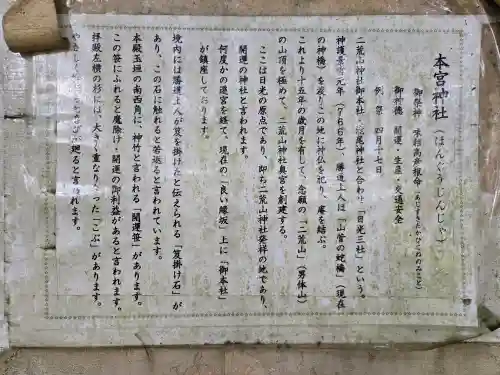 本宮神社(ほんぐうじんじゃ)
御祭神 味耜高彦根命(あじすきたかひこねのみこと)
御利徳 開運・生産・交通安全
例祭 四月十七日
二荒山神社御本社、滝尾神社と合わせ「日光三社」という。
神護景雲元年(766年)、勝道上人は「山菅の蛇橋」(現在
の神橋)を渡りこの地に神仏を祀り、庵を結ぶ。
これより十五年の歳月を有して、念願の「二荒山」(男体山)
の山頂を極めて、二荒山神社奥宮を創建する。
ここは日光の原点であり、即ち二荒山神社発祥の地であり、
開運の神社と言われます。
何度かの遷宮を経て、現在の「良い縁坂」上に「御本社」
が鎮座しております。
境内には勝道上人が笈を掛けたと伝えられる「笈掛け石」が
あり、この石に触れると若返ると言われています。
本殿玉垣の南西角に「神竹と言われる「開運笹」があります。
この笹にふれると魔除け・開運の御利益があると言われます。
拝殿左横の杉には、大きく重なりあった「こぶ」があります。
廻ると言われます。